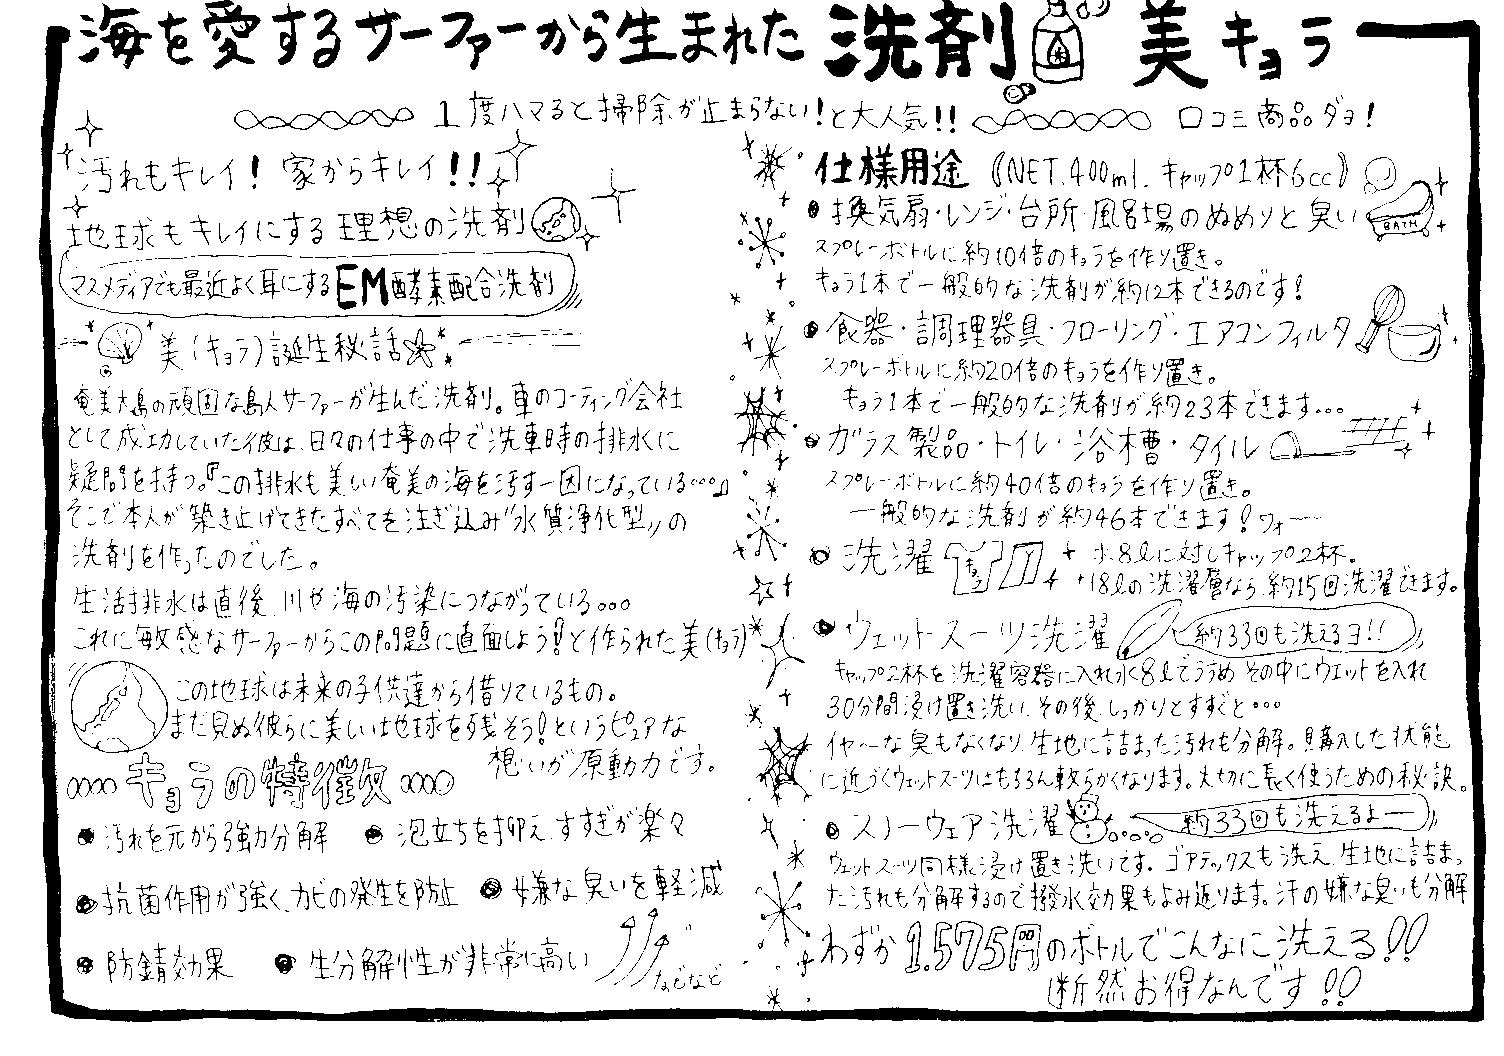 海を愛するサーファーから生まれた洗剤 美キョラ
1度ハマると掃除が止まらない!と大人気!! 口コミ商品ダョ!
汚れもキレイ! 家からキレイ!!
地球もキレイにする理想の洗剤
マスメディアでも最近よく耳にするEM酵素配合洗剤
美(キョラ)誕生秘話
奄美大島の頑固な島人サーファーが生んだ洗剤。車のコーティング会社
として成功していた彼は、日々の仕事の中で洗車時の排水に
疑問を持つ。『この排水も美しい奄美の海を汚す一因になっている…』
そこで本人が築き上げてきたすべてを注ぎ込み"水質浄化型"の
洗剤を作ったのでした。
生活排水は直後、川や海の汚染につながっている…
これに敏感なサーファーからこの問題に直面しよう!と作られた美(キョラ)
この地球は未来の子供達から借りているもの。
まだ見ぬ彼らに美しい地球を残そう!というピュアな
想いが原動力です。
キョラの特徴
●汚れを元から強力分解 ●泡立ちを抑え、すすぎが楽々
●抗菌作用が強く、カビの発生を防止 ●嫌な臭いを軽減
●防錆効果 ●生分解性が非常に高い
などなど
仕様用途《NET.400ml. キャップ1杯6cc》
●換気扇・レンジ・台所・風呂場のぬめりと臭い
BATH
スプレーボトルに約10倍のキョラを作り置き。
キョラ1本で一般的な洗剤が約12本できるのです!
●食器・調理器具・フローリング・エアコンフィルタ
スプレーボトルに約20倍のキョラを作り置き。
キョラ1本で一般的な洗剤が約23本できます…
●ガラス製品・トイレ・浴槽・タイル
スプレーボトルに約40倍のキョラを作り置き。
一般的な洗剤が約46本できます!ウォー
●洗濯 水8lに対しキャップ2杯。
18lの洗濯層なら約15回洗濯できます。
●ウェットスーツ洗濯 約33回も洗えるヨ!!
キャップ2杯を洗濯容器に入れ水8lでうすめ その中にウェットを入れ
30分間浸け置き洗い、その後、しっかりとすすぐと…
イヤ~な臭もなくなり、生地に詰まった汚れも分解。購入した状態
に近づくウェットスーツはもちろん軟らかくなります。大切に長く使うための秘訣。
●スノーウェア洗濯 約33回も洗えるよー
ウェットスーツ同様浸け置き洗いです。ゴアテックスも洗え、生地に詰まっ
た汚れも分解するので撥水効果もよみ返ります。汗の嫌な臭いも分解
わずか1.575円のボトルでこんなに洗える!!
断然お得なんです!!